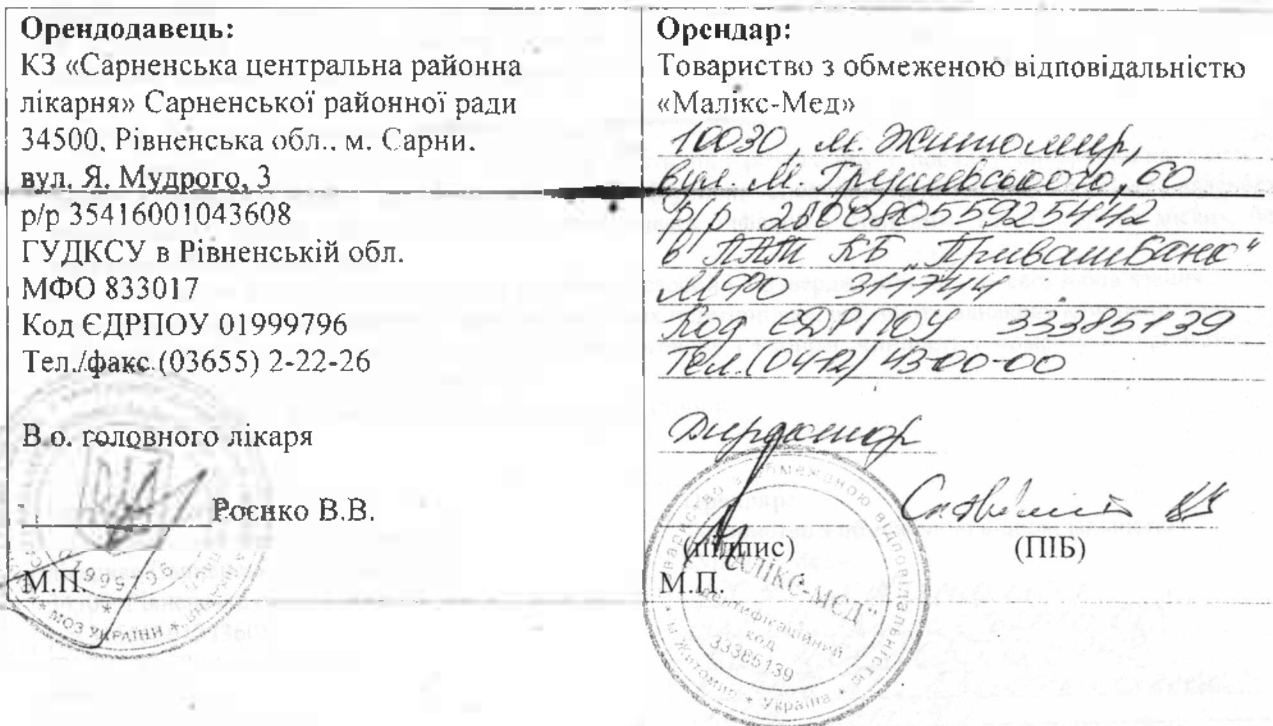 Орендодавець:
КЗ «Сарненська центральна районна
лікарня» Сарненської районної ради
34500, Рівненська обл., м. Сарни.
вул. Я. Мудрого, 3
р/р 35416001043608
ГУДКСУ в Рівненській обл.
МФО 833017
Код ЄДРПОУ 01999796
Тел./факс (03655) 2-22-26
В.о. головного лікаря
Роєнко В.В.
М.П.
МОЗ УКРАЇНИ
Орендар:
Товариство з обмеженою відповідальністю
«Малікс-Мед»
10030, м. Житомир,
вул. М. Грушевського, 60
р/р 26008055925442
в ПАТ КБ „ПриватБанк"
МФО 311744
Код ЄДРПОУ 33385139
Тел. (0412) 43-00-00
Директор
(підпис) (ПІБ)
М.П.
Товариство з обмеженою відповідальністю
"МАЛІКС-МЕД"
ідентифікаційний
код
33385139
м. Житомир * Україна